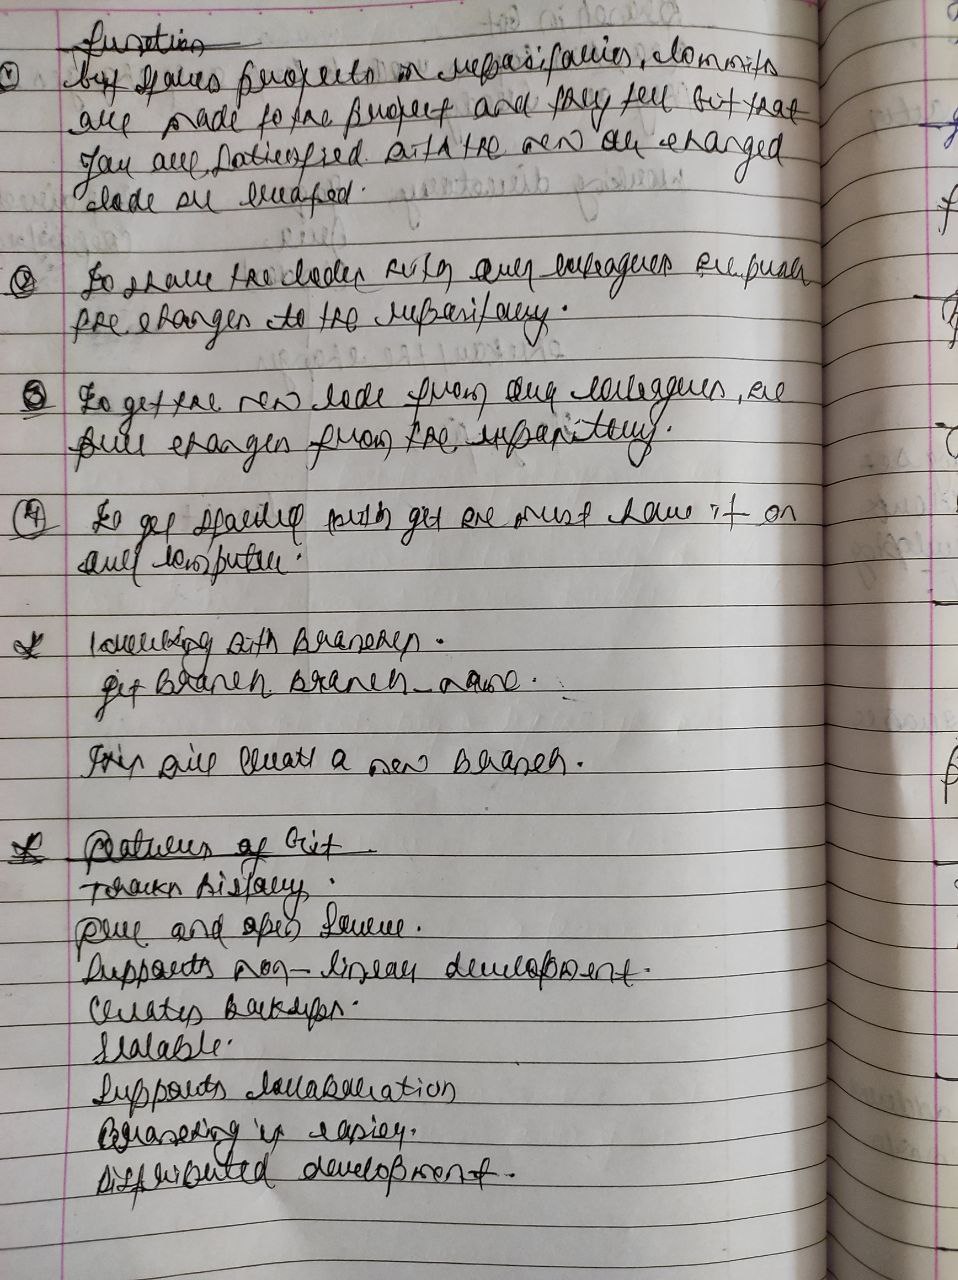 function
① Git stores projects in repositories, Commits
are made to the project and they tell Git that
you are satisfied with the new or changed
code we created.
② To share the codes with our colleagues we push
the changes to the repository.
③ To get the new code from our colleagues, we
pull changes from the repository.
④ To get started with git we must have it on
our computer.
* working with Branches.
git Branch Branch-name.
This will create a new Branch.
* Features of Git
Tracks history.
Free and open source.
Supports non-linear development.
Creates backups.
Scalable.
Supports collaboration
Branching is easier.
Distributed development.